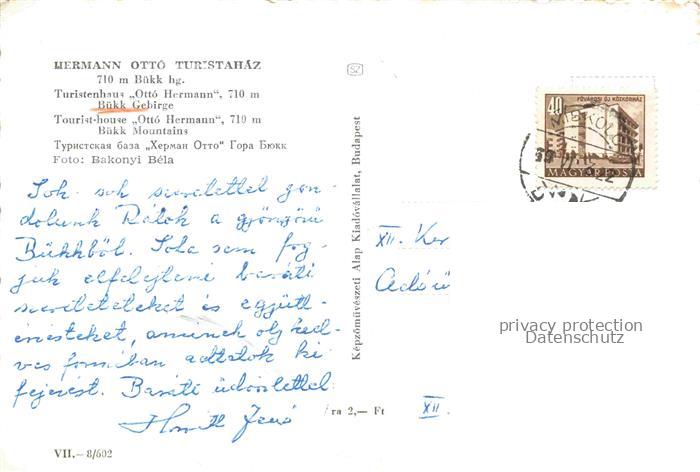 HERMANN OTTÓ TURISTAHÁZ
710 m Bükk hg.
Turistenhaus „Ottó Hermann", 710 m
Bükk Gebirge
Tourist-house „Otto Hermann", 710 m
Bükk Mountains
Туристская база „Херман Отто" Гора Бюкк
Foto: Bakonyi Béla
Sok-sok szeretettel gon-
dolunk Rátok a gyönyörű
Bükkből. Soha sem fog-
juk elfelejteni baráti
szereteteteket és együtt-
érzésteket, aminek oly ked-
ves formában adtatok ki-
fejezést. Baráti üdvözlettel
Jenő
VII.—8/602
SZ
Képzőművészeti Alap Kiadóvállalat, Budapest
ra 2,— Ft
40
FŐVÁROSI ÚJ KÖZKÓRHÁZ
MAGYAR POSTA
MISKOLC
XII. Ker
XII.
privacy protection
Datenschutz